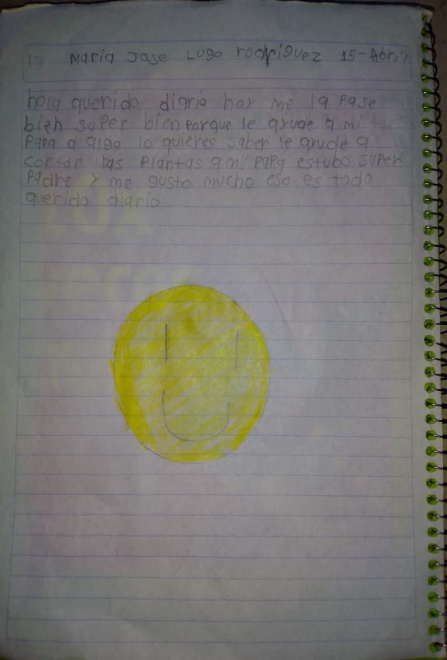 Maria Jose Lugo rodriguez 15-Abril
hola querido diario hoy me la pase
bien super bien porque le ayude a mi
Papa a algo lo quieres saber le ayude a
cortar las Plantas a mi PaPa estubo super
Padre y me gusto mucho eso es todo
querido diario